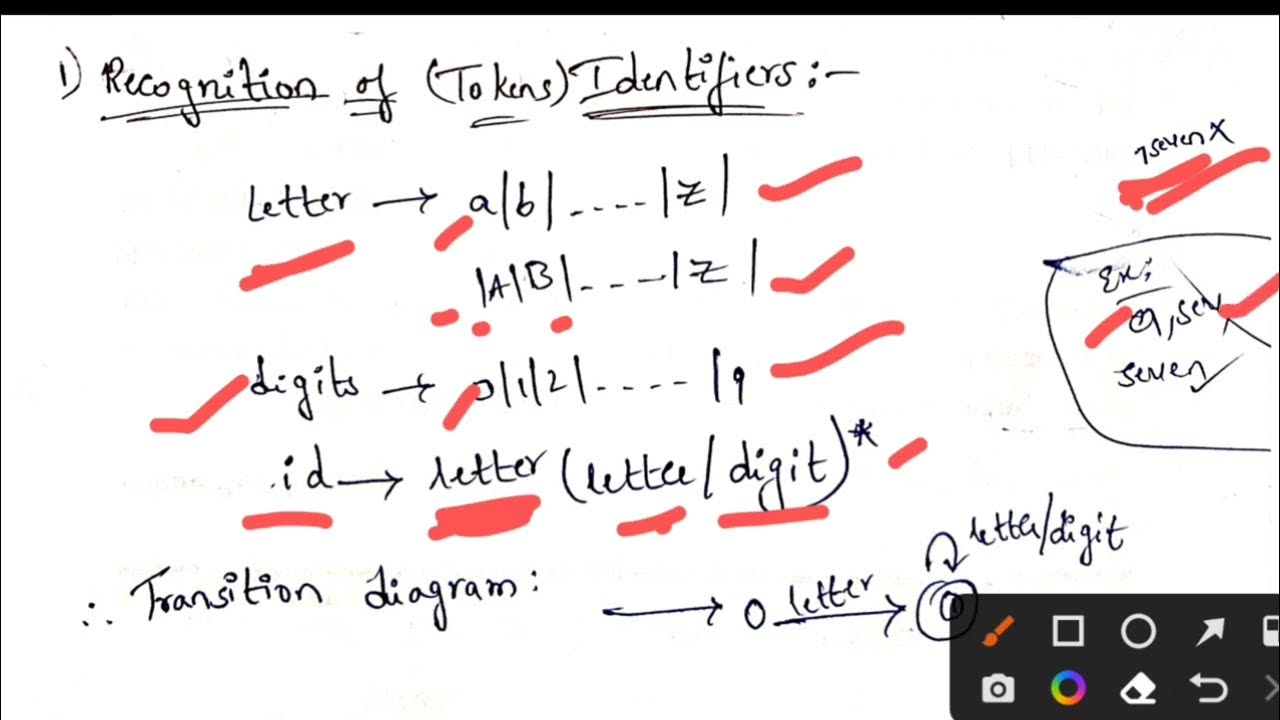 1) Recognition of (Tokens) Identifiers:-
7seven X
letter → a|b|....|z|
|A|B|....|Z|
Ex:
a, sev
seven ✓
digits → 0|1|2|.....|9
id → letter (letter/digit)*
letter/digit
∴ Transition diagram: → O letter →